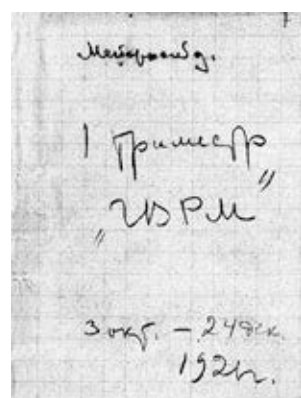 Мейерхольд.
I триместр
„ГВРМ”
3 окт. – 24 дек.
1921 г.